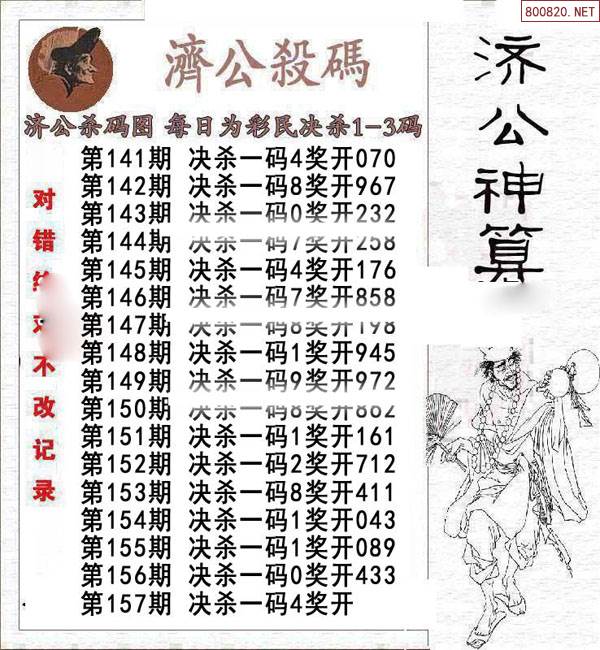 800820.NET
濟公殺碼
济公杀码图 每日为彩民决杀1-3码
第141期 决杀一码4奖开070
第142期 决杀一码8奖开967
第143期 决杀一码0奖开232
第144期 决杀一码7奖开258
第145期 决杀一码4奖开176
第146期 决杀一码7奖开858
第147期 决杀一码 奖开198
第148期 决杀一码1奖开945
第149期 决杀一码9奖开972
第150期 决杀一码 奖开
第151期 决杀一码1奖开161
第152期 决杀一码2奖开712
第153期 决杀一码8奖开411
第154期 决杀一码1奖开043
第155期 决杀一码1奖开089
第156期 决杀一码0奖开433
第157期 决杀一码4奖开
对错不改记录
济公神算